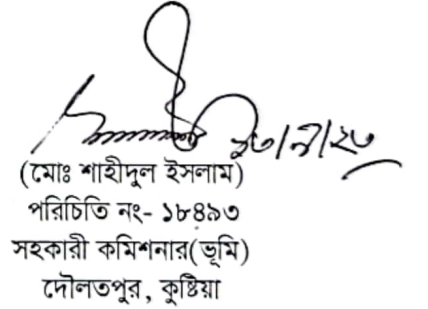 (মোঃ শাহীদুল ইসলাম)
পরিচিতি নং- ১৮৪৯৩
সহকারী কমিশনার(ভূমি)
দৌলতপুর, কুষ্টিয়া